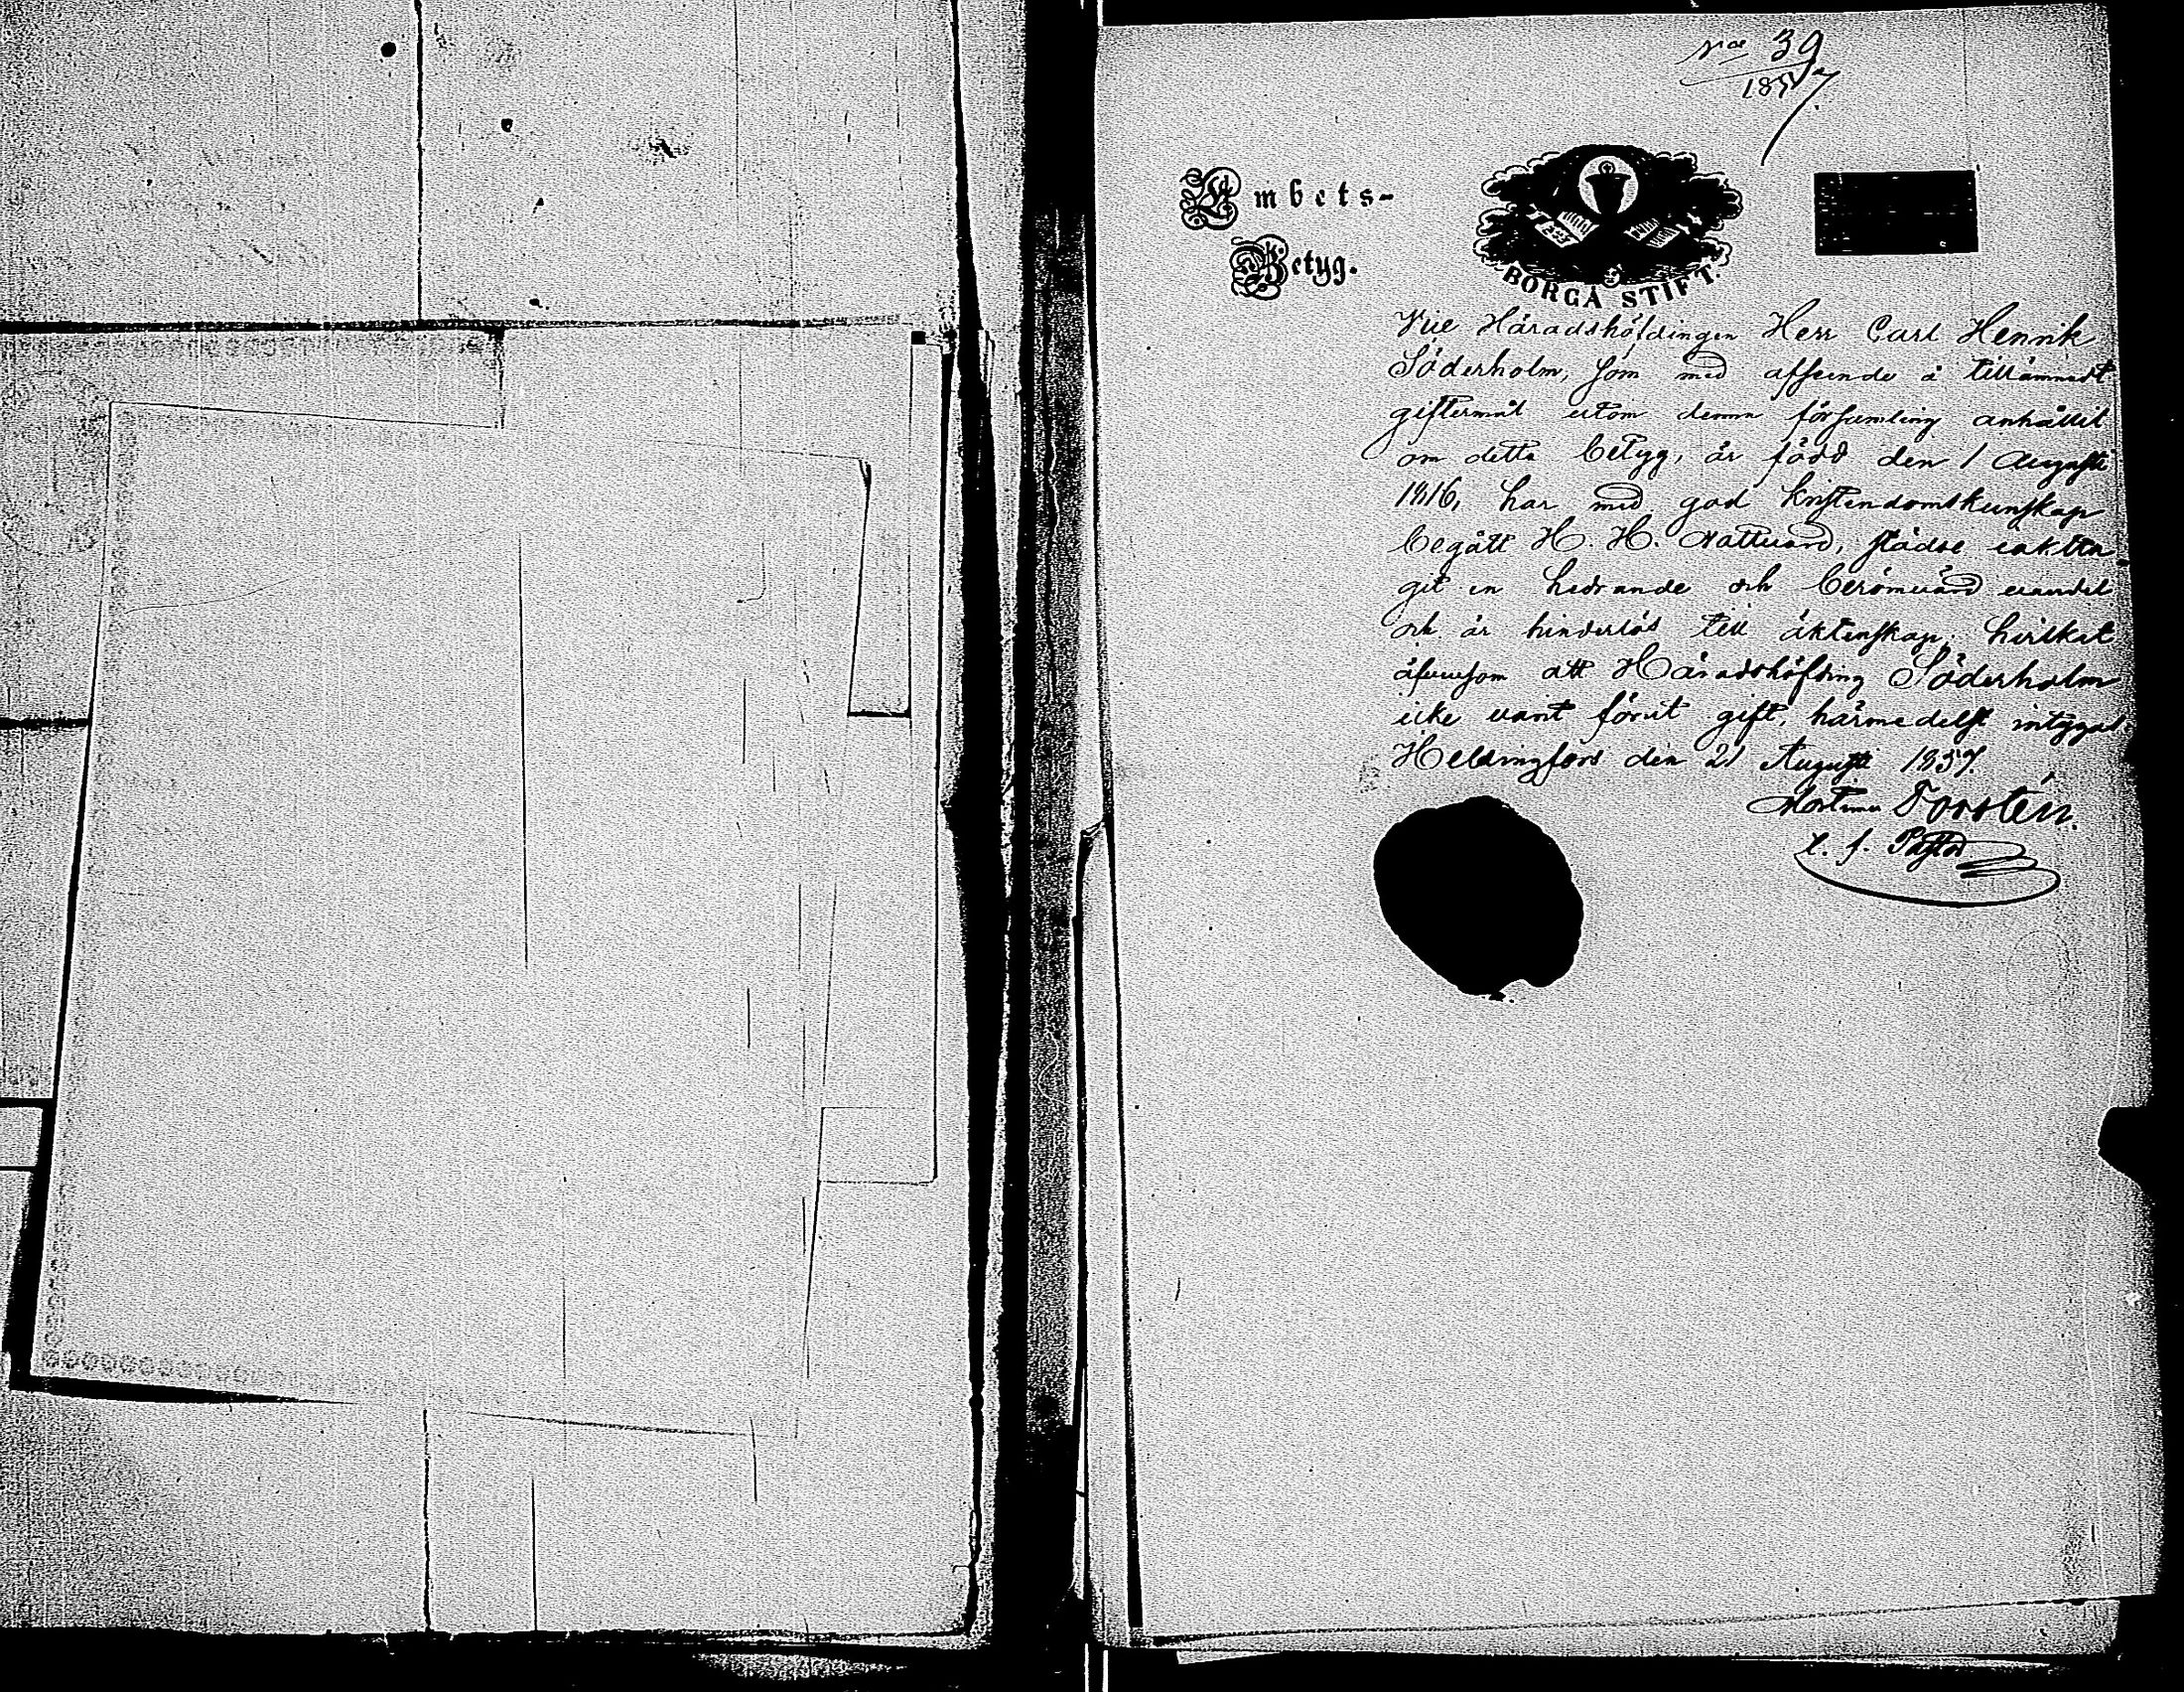 No 39
1857
Embets-
Betyg.
BORGÅ STIFT.
Vice Häradshöfdingen Herr Carl Henrik
Söderholm, som med afseende å tillämnadt
giftermål utom denna församling anhållit
om detta betyg, är född den 1 Augusti
1816, har med god kristendomskunskap
begått H. H. Nattvard, städse iaktta
git en hedrande och berömvärd vandel
och är hinderlös till äktenskap; hvilket
äfvensom att Häradshöfding Söderholm
icke varit förut gift, härmedelst intygad.
Helsingfors den 21 Augusti 1857.
Forstén.
Pastor